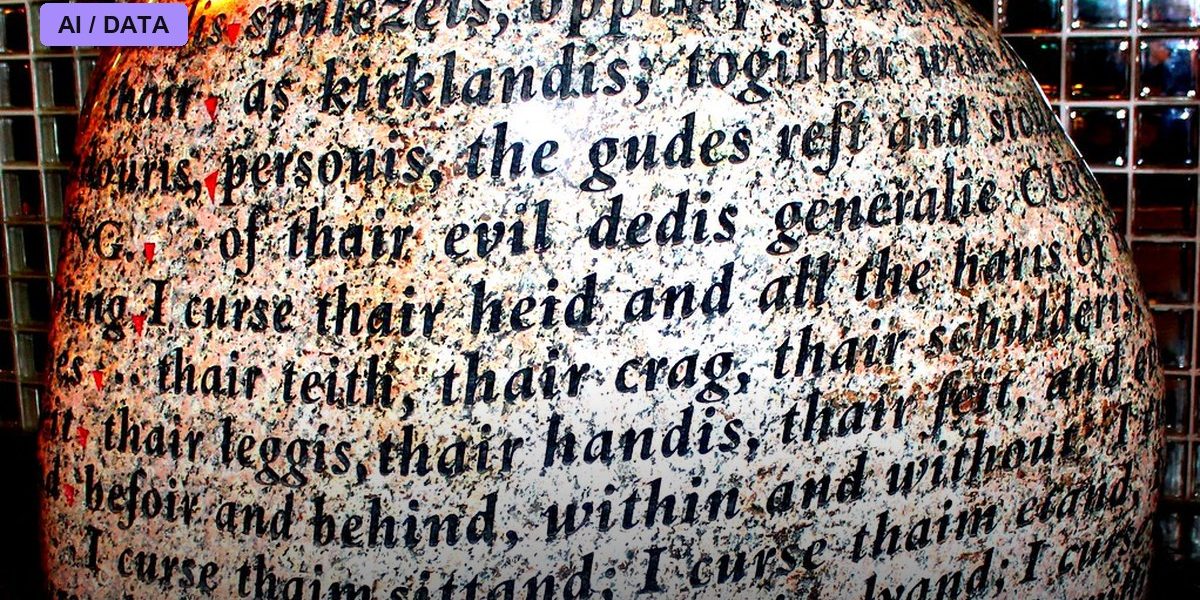 AI / DATA
thair, as kirklandis; togither
personis, the gudes reft and
of thair evil dedis generalie
I curse thair heid and all the haris of
thair teith, thair crag, thair schulderis
thair leggis, thair handis, thair feit, and
befoir and behind, within and without. I
I curse thaim sittand; I curse thaim etand,
I curs